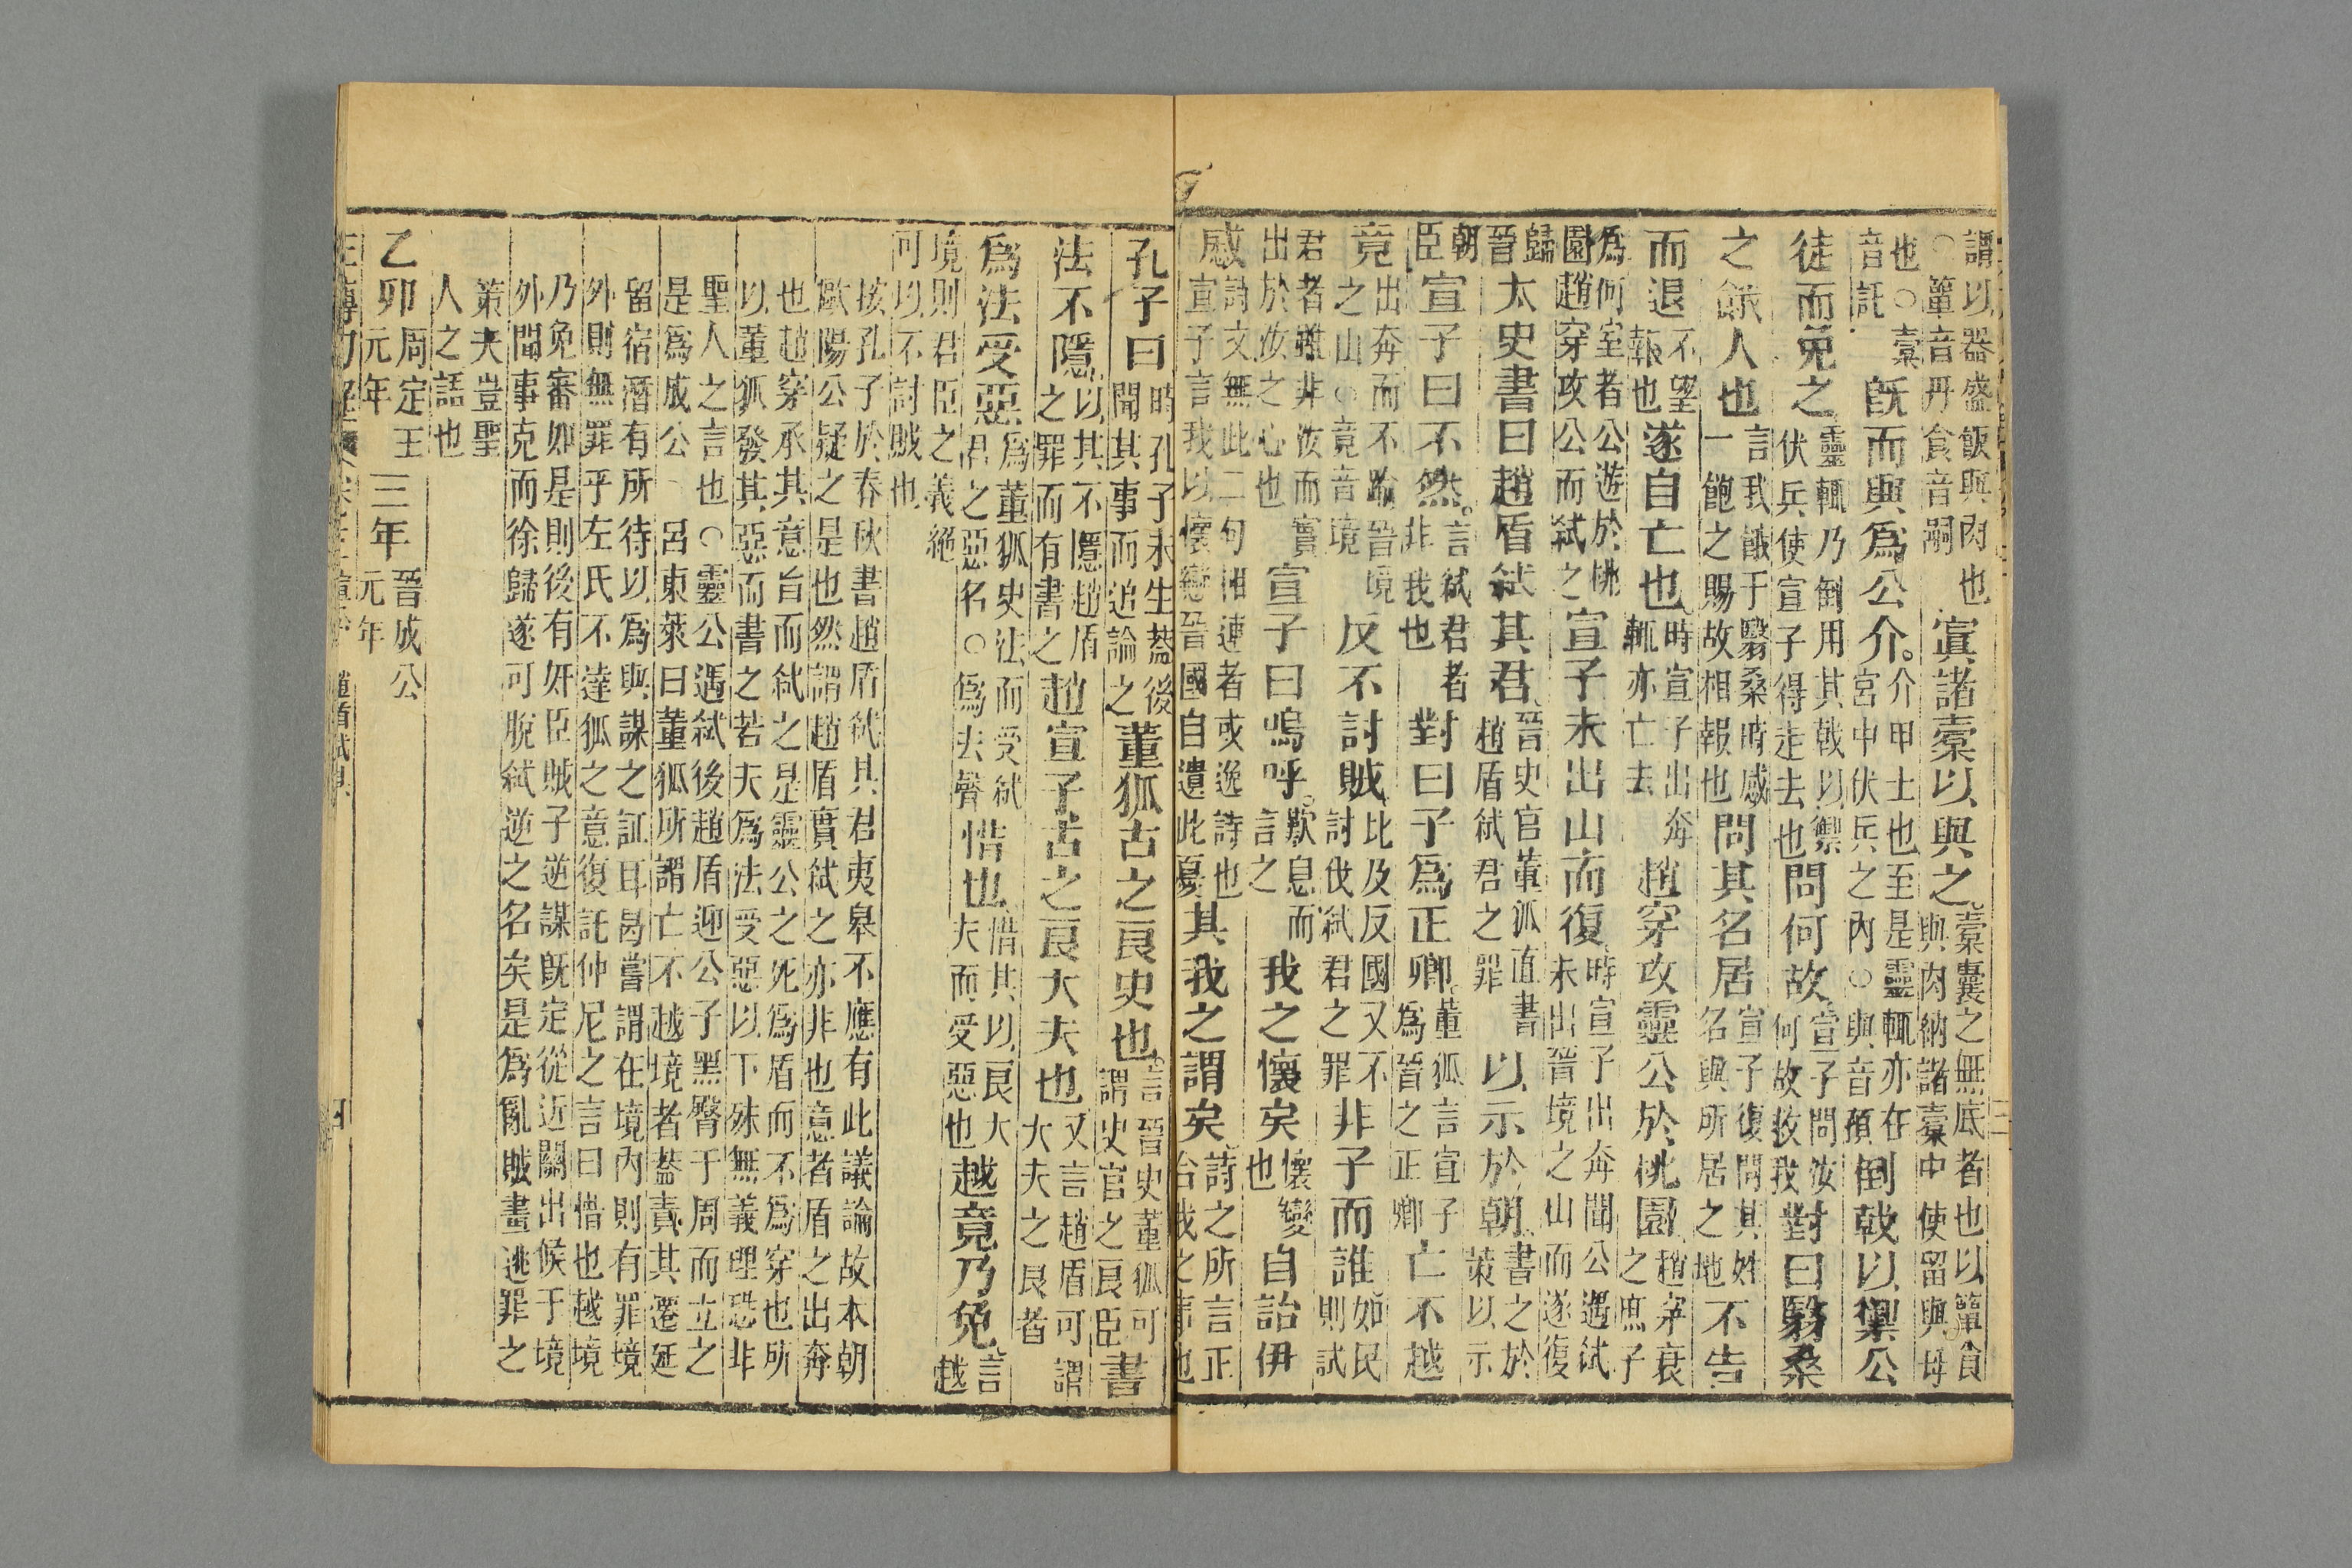 謂以器盛飯與肉也○簞音丹食音嗣寘諸橐以與之橐囊之無底者也以簞食與肉納諸橐中使留與母
也○橐音託既而與爲公介介甲士也至是靈輒亦在宮中伏兵之內○與音預倒戟以禦公
徒而免之靈輒乃倒用其戟以禦伏兵使宣子得走去也問何故宣子問汝何故救我對曰翳桑
之餓人也言我餓于翳桑時感一飽之賜故相報也問其名居宣子復問其姓名與所居之地不告
而退不望報也遂自亡也時宣子出奔輒亦亡去趙穿攻靈公於桃園趙穿衰之庶子
爲何室者公遊於桃園趙穿攻公而弒之宣子未出山而復時宣子出奔聞公遇弒未出晉境之山而遂復
歸晉太史書曰趙盾弒其君晉史官董狐直書趙盾弒君之罪以示於朝書之於策以示
朝臣宣子曰不然言弒君者非我也對曰子爲正卿董狐言宣子爲晉之正卿亡不越
竟出奔而不踰晉境之山○竟音境反不討賊比及反國又不討伐弒君之罪非子而誰如民則試
君者雖非汝而實出於汝之心也宣子曰嗚呼歎息而言之我之懷矣懷變也自詒伊
慼詩文無此二句相連者或逸詩也宣子言我以懷戀晉國自遺此憂其我之謂矣詩之所言正合我之事也
孔子曰時孔子未生蓋後聞其事而追論之董狐古之良史也言晉史董狐可謂史官之良臣書
法不隱以其不隱趙盾之罪而有書之趙宣子古之良大夫也又言趙盾可謂大夫之良者
爲法受惡爲董狐史法而受弒君之惡名○爲去聲惜也惜其以良大夫而受惡也越竟乃免言越
境則君臣之義絕可以不討賊也
按孔子於春秋書趙盾弒其君夷皋不應有此議論故本朝
歐陽公疑之是也然謂趙盾實弒之亦非也意者盾之出奔
也趙穿承其意旨而弒之是靈公之死爲盾而不爲穿也所
以董狐發其惡而書之若夫爲法受惡以下殊無義理恐非
聖人之言也○靈公遇弒後趙盾迎公子黑臀于周而立之
是爲成公　呂東萊曰董狐所謂亡不越境者蓋責其遷延
留宿潛有所待以爲與謀之証耳曷嘗謂在境內則有罪境
外則無罪乎左氏不達狐之意復託仲尼之言曰惜也越境
乃免審如是則後有奸臣賊子逆謀既定從近關出候于境
外聞事克而徐歸遂可脫弒逆之名矣是爲亂賊畫逃罪之
策夫豈聖人之語也
乙卯周定王元年三年晉成公元年
趙盾弒君